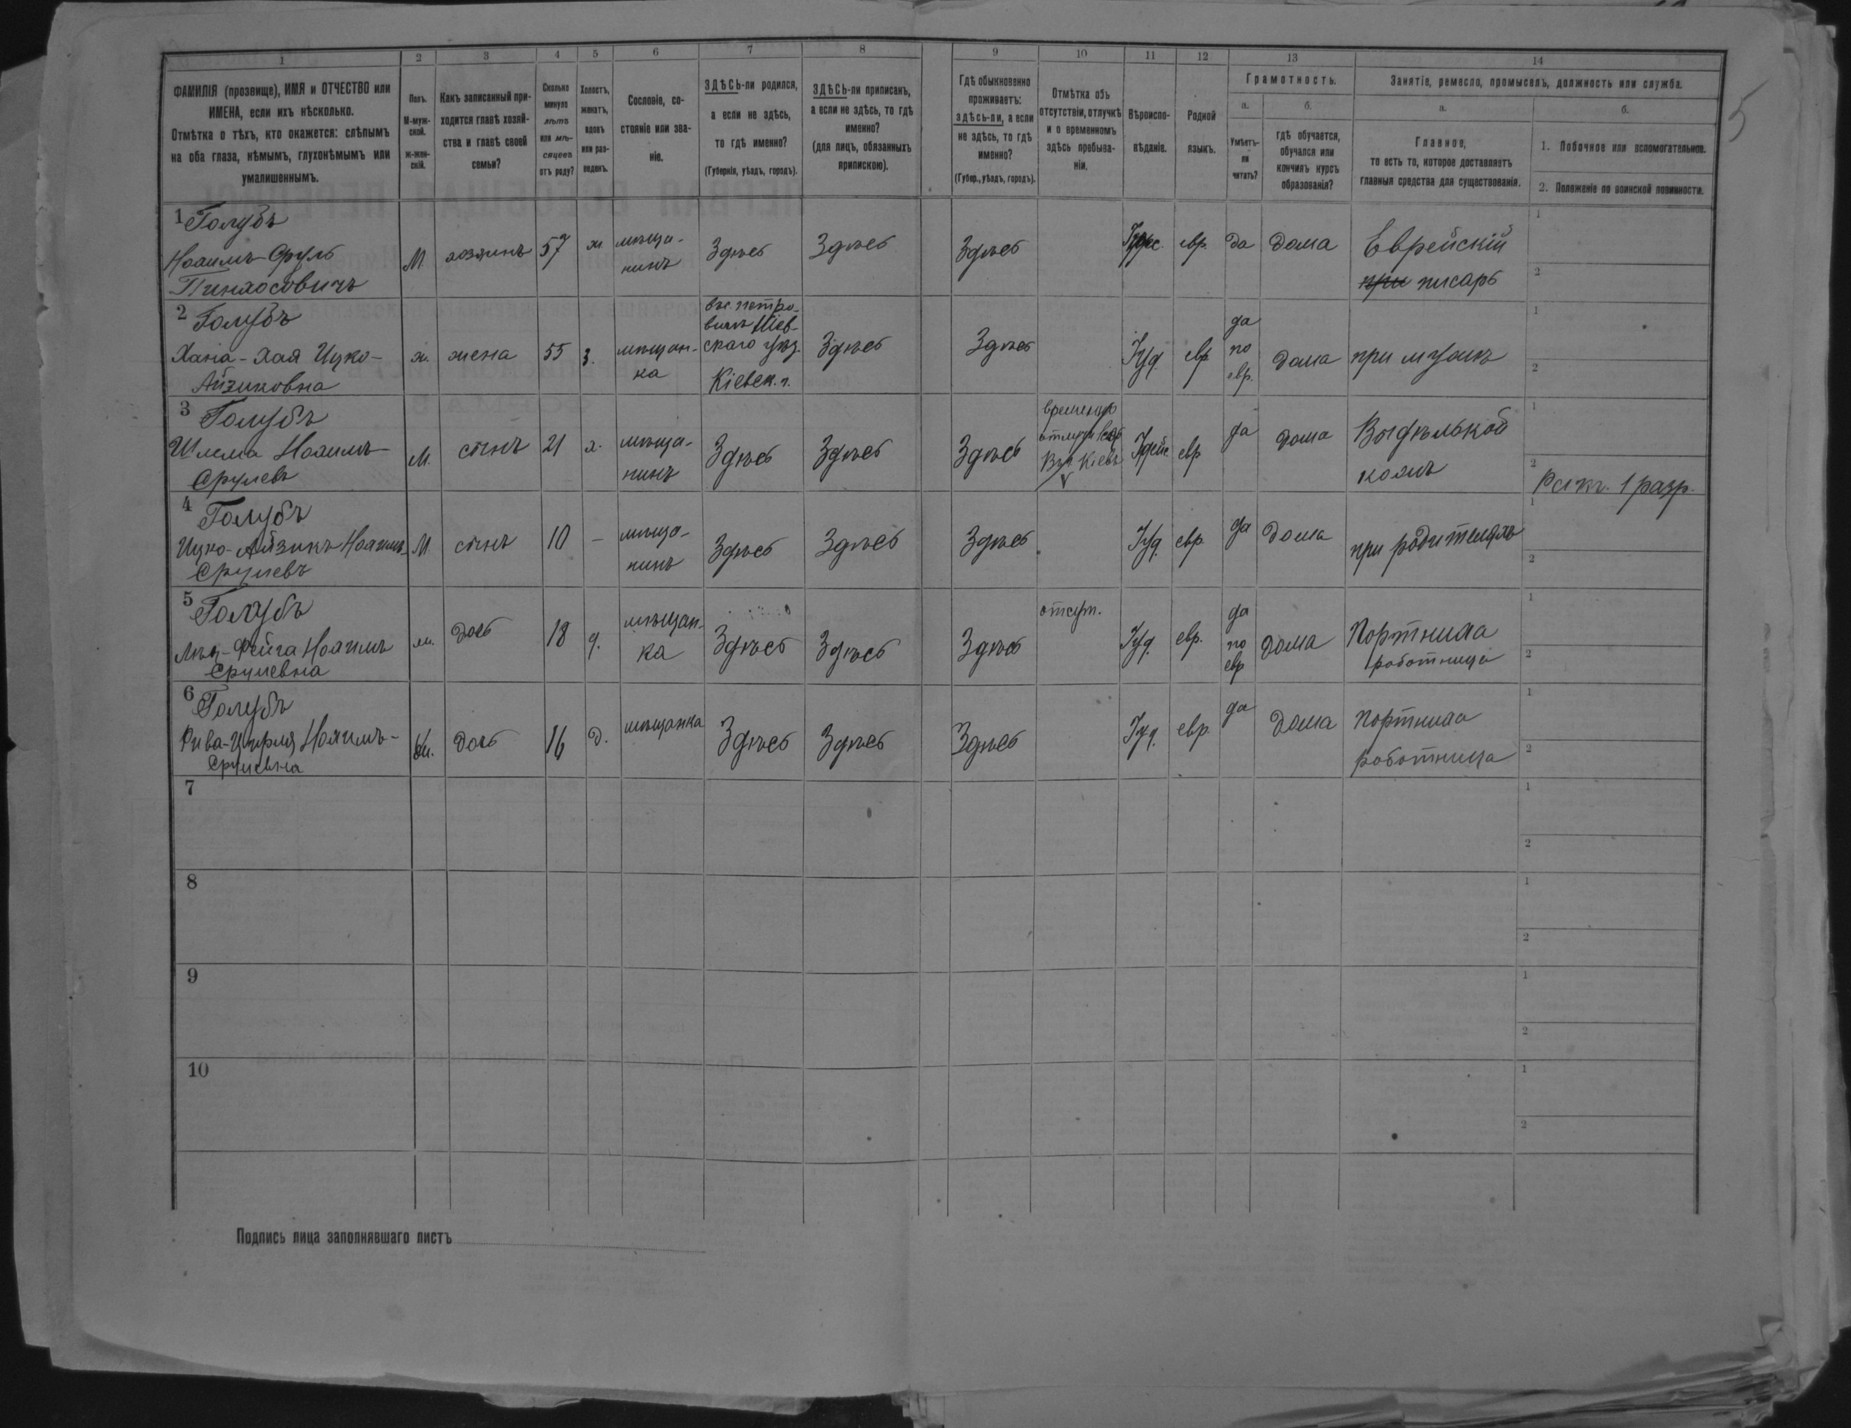 1 2 3 4 5 6 7 8 9 10 11 12 13 14
ФАМИЛІЯ (прозвище), ИМЯ и ОТЧЕСТВО или
ИМЕНА, если ихъ нѣсколько.
Отмѣтка о тѣхъ, кто окажется: слѣпымъ
на оба глаза, нѣмымъ, глухонѣмымъ или
умалишеннымъ.
Полъ.
М-муж-
ской.
ж-жен-
скій.
Какъ записанный при-
ходится главѣ хозяй-
ства и главѣ своей
семьи?
Сколько
минуло
лѣтъ
или мѣ-
сяцевъ
отъ роду?
Холостъ,
женатъ,
вдовъ
или раз-
веденъ.
Сословіе, со-
стояніе или зва-
ніе.
ЗДѢСЬ-ли родился,
а если не здѣсь,
то гдѣ именно?
(Губернія, уѣздъ, городъ).
ЗДѢСЬ-ли приписанъ,
а если не здѣсь, то гдѣ
именно?
(для лицъ, обязанныхъ
припискою).
Гдѣ обыкновенно
проживаетъ:
здѣсь-ли, а если
не здѣсь, то гдѣ
именно?
(Губер., уѣздъ, городъ).
Отмѣтка объ
отсутствіи, отлучкѣ
и о временномъ
здѣсь пребыва-
ніи.
Вѣроиспо-
вѣданіе.
Родной
языкъ.
Грамотность.
а. б.
Умѣетъ-
ли
читать?
гдѣ обучается,
обучался или
кончилъ курсъ
образованія?
Занятіе, ремесло, промыселъ, должность или служба.
а. б.
Главное,
то есть то, которое доставляетъ
главныя средства для существованія.
1. Побочное или вспомогательное.
2. Положеніе по воинской повинности.
5
1 Голубъ
Нохимъ-Сруль
Пинхосовичъ
М. хозяинъ 57 ж
мѣща-
нинъ
Здѣсь Здѣсь Здѣсь
евр. да дома
Еврейскій
писарь
1
2
2 Голубъ
Хана-Хая Ицко-
Айзиковна
ж. жена 55 з.
мѣщан-
ка
Кіевск. г.
Здѣсь Здѣсь
Іуд. евр
да
по
евр.
дома при мужѣ
1
2
3 Голубъ
Шлема Нохимъ-
Срулевъ
М. сынъ 21 х.
мѣща-
нинъ
Здѣсь Здѣсь Здѣсь
Іудейс евр
да дома
1
2
4 Голубъ
Ицко-Айзикъ Нохимъ-
Срулевъ
М. сынъ 10 —
мѣща-
нинъ
Здѣсь Здѣсь Здѣсь
Іуд. евр. да дома
при родителяхъ
1
2
5 Голубъ
Фейга Нохимъ
Срулевна
ж. дочь 18 д.
мѣщан-
ка
Здѣсь Здѣсь Здѣсь
отсут.
Іуд. евр.
да
по
евр
дома
Портниха
работница
1
2
6 Голубъ
Рива-Цирля Нохимъ-
Срулевна
ж. дочь 16 д.
мѣщанка
Здѣсь Здѣсь Здѣсь
Іуд. евр. да дома
портниха
работница
1
2
7
1
2
8
1
2
9
1
2
10
1
2
Подпись лица заполнявшаго листъ